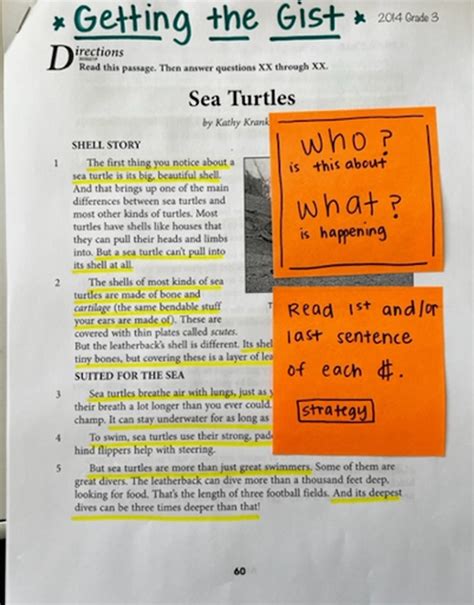 * Getting the Gist *
2014 Grade 3
Directions
Read this passage. Then answer questions XX through XX.
Sea Turtles
by Kathy Krank
SHELL STORY
1 The first thing you notice about a
sea turtle is its big, beautiful shell.
And that brings up one of the main
differences between sea turtles and
most other kinds of turtles. Most
turtles have shells like houses that
they can pull their heads and limbs
into. But a sea turtle can't pull into
its shell at all.
2 The shells of most kinds of sea
turtles are made of bone and
cartilage (the same bendable stuff
your ears are made of). These are
covered with thin plates called scutes.
But the leatherback's shell is different. Its shel
tiny bones, but covering these is a layer of lea
SUITED FOR THE SEA
3 Sea turtles breathe air with lungs, just as y
their breath a lot longer than you ever could.
champ. It can stay underwater for as long as
4 To swim, sea turtles use their strong, pad
hind flippers help with steering.
5 But sea turtles are more than just great swimmers. Some of them are
great divers. The leatherback can dive more than a thousand feet deep,
looking for food. That's the length of three football fields. And its deepest
dives can be three times deeper than that!
60
who?
is this about
what?
is happening
Read 1st and/or
last sentence
of each ¶.
strategy